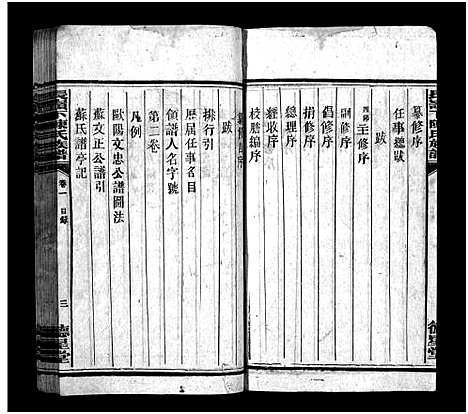 纂修序
任事總號
跋
四歸 至修序
副修序
倡修序
捐修序
總理序
經收序
校謄編序
跋
排行引
歷屆任事名目
領譜人名字號
第二卷
凡例
歐陽文忠公譜圖法
蘇文正公譜引
蘇氏譜亭記
陳氏族譜
卷一 目錄
三
德星堂